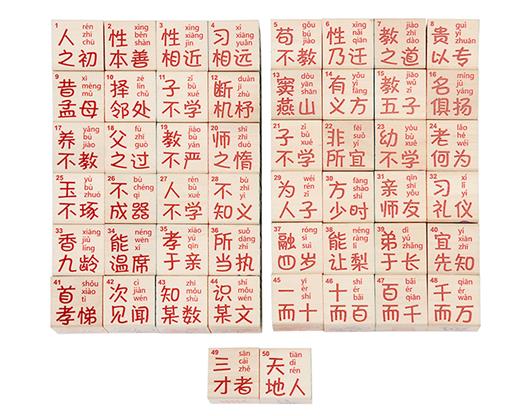 1 rén zhī chū 人之初
2 xìng běn shàn 性本善
3 xìng xiāng jìn 性相近
4 xí xiāng yuǎn 习相远
5 gǒu bú jiào 苟不教
6 xìng nǎi qiān 性乃迁
7 jiào zhī dào 教之道
8 guì yǐ zhuān 贵以专
9 xī mèng mǔ 昔孟母
10 zé lín chǔ 择邻处
11 zǐ bù xué 子不学
12 duàn jī zhù 断机杼
13 dòu yān shān 窦燕山
14 yǒu yì fāng 有义方
15 jiào wǔ zǐ 教五子
16 míng jù yáng 名俱扬
17 yǎng bú jiào 养不教
18 fù zhī guò 父之过
19 jiào bù yán 教不严
20 shī zhī duò 师之惰
21 zǐ bù xué 子不学
22 fēi suǒ yí 非所宜
23 yòu bù xué 幼不学
24 lǎo hé wéi 老何为
25 yù bù zhuó 玉不琢
26 bù chéng qì 不成器
27 rén bù xué 人不学
28 bù zhī yì 不知义
29 wéi rén zǐ 为人子
30 fāng shào shí 方少时
31 qīn shī yǒu 亲师友
32 xí lǐ yí 习礼仪
33 xiāng jiǔ líng 香九龄
34 néng wēn xí 能温席
35 xiào yú qīn 孝于亲
36 suǒ dāng zhí 所当执
37 róng sì suì 融四岁
38 néng ràng lí 能让梨
39 dì yú zhǎng 弟于长
40 yí xiān zhī 宜先知
41 shǒu xiào tì 首孝悌
42 cì jiàn wén 次见闻
43 zhī mǒu shù 知某数
44 shí mǒu wén 识某文
45 yī ér shí 一而十
46 shí ér bǎi 十而百
47 bǎi ér qiān 百而千
48 qiān ér wàn 千而万
49 sān cái zhě 三才者
50 tiān dì rén 天地人